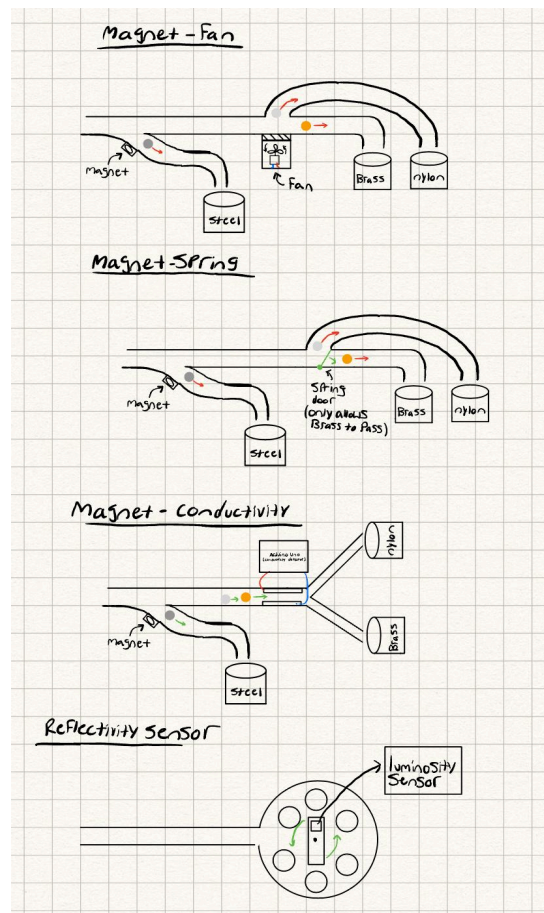 Magnet - Fan
Magnet
Fan
Steel
Brass
nylon
Magnet - Spring
Magnet
Spring
door
(only allows
Brass to Pass)
Steel
Brass
nylon
Magnet - Conductivity
Arduino Uno
nylon
Magnet
Brass
Steel
Reflectivity Sensor
luminosity
Sensor